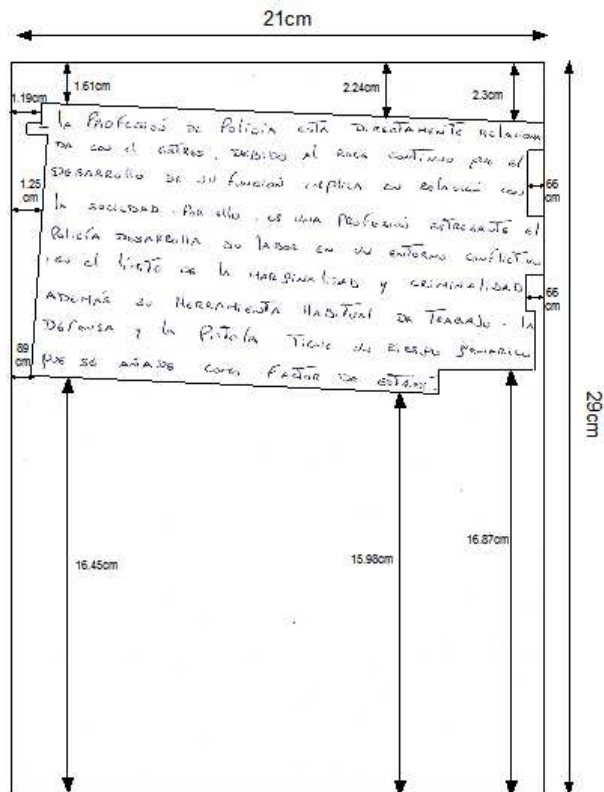 21cm
1.61cm
2.24cm
2.3cm
1.19cm
LA PROFESIÓN DE POLICÍA ESTÁ DIRECTAMENTE RELACIONA
DA CON EL ESTRES, DEBIDO AL ROCE CONTINUO QUE EL
DESARROLLO DE SU FUNCIÓN IMPLICA EN RELACIÓN CON
66
cm
1.25
cm
LA SOCIEDAD. POR ELLO, ES UNA PROFESIÓN ESTRESANTE EL
POLICÍA DESARROLLA SU LABOR EN UN ENTORNO CONFLICTIVO
EN EL LÍMITE DE LA MARGINALIDAD Y CRIMINALIDAD
66
cm
ADEMÁS SU HERRAMIENTA HABITUAL DE TRABAJO. LA
DEFENSA Y LA PISTOLA TIENE UN RIESGO GENÉRICO
89
cm
QUE SE AÑADE COMO FACTOR DE ESTRÉS.
29cm
16.45cm
15.98cm
16.87cm